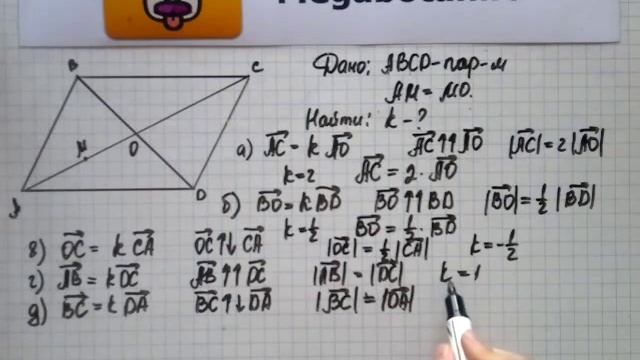 B
C
M
O
A
D
Дано: ABCD-пар-м
AM = MO.
Найти: k - ?
а) AC = k AO AC ↑↑ AO |AC| = 2 |AO|
k = 2 AC = 2 · AO
б) BO = k BD BO ↑↑ BD |BO| = 1/2 |BD|
k = 1/2 BO = 1/2 · BD
в) OC = k CA OC ↑↓ CA |OC| = 1/2 |CA| k = -1/2
г) AB = k DC AB ↑↑ DC |AB| = |DC| k = 1
д) BC = k DA BC ↑↓ DA |BC| = |DA|